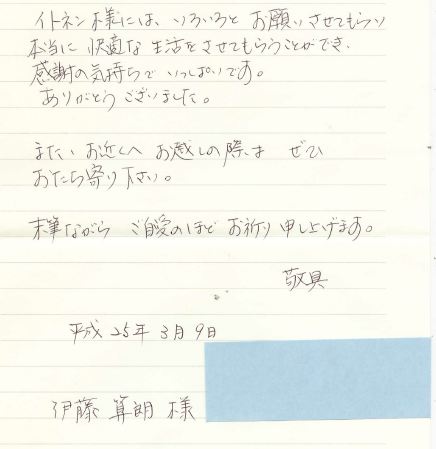 イトネン様には、いろいろと お願いさせてもらい
本当に 快適な 生活をさせてもらうことができ、
感謝の気持ちで いっぱいです。
ありがとう ございました。
また、お近くへ お越しの際は ぜひ
おたち寄り下さい。
末筆ながら ご自愛のほど お祈り申し上げます。
敬具
平成 25年 3月 9日
伊藤 算朗 様